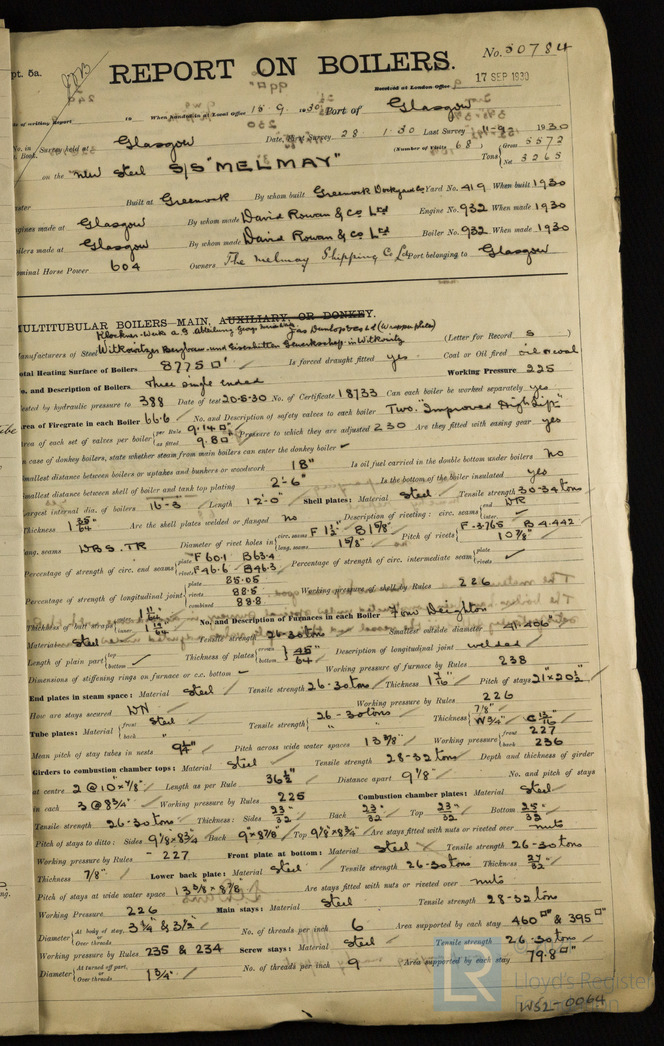 pt. 5a.
REPORT ON BOILERS.
No. 50784
Received at London Office
17 SEP 1930
of writing Report When handed in at Local Office 15.9.1930 Port of Glasgow
No. in Survey held at Glasgow Date, First Survey 28.1.30 Last Survey 11.9.1930
Book.
(Number of Visits 68) Tons Gross 5572 Net 3265
on the "New Steel S/S "MELMAY"
Built at Greenock By whom built Greenock Dockyard Co Yard No. 419 When built 1930
Engines made at Glasgow By whom made David Rowan & Co Ltd Engine No. 932 When made 1930
Boilers made at Glasgow By whom made David Rowan & Co Ltd Boiler No. 932 When made 1930
Nominal Horse Power 604 Owners The Melmay Shipping Co Ld Port belonging to Glasgow
MULTITUBULAR BOILERS MAIN, AUXILIARY, OR DONKEY.
Manufacturers of Steel (Letter for Record S)
Total Heating Surface of Boilers 8775 □' Is forced draught fitted yes Coal or Oil fired oil & coal
No. and Description of Boilers Three single ended Working Pressure 225
Tested by hydraulic pressure to 388 Date of test 20.5.30 No. of Certificate 18733 Can each boiler be worked separately yes
Area of Firegrate in each Boiler 66.6 No. and Description of safety valves to each boiler Two "Improved High Lift"
Area of each set of valves per boiler per Rule 9.14 □" as fitted 9.80 □" Pressure to which they are adjusted 230 Are they fitted with easing gear yes
In case of donkey boilers, state whether steam from main boilers can enter the donkey boiler ✓
Smallest distance between boilers or uptakes and bunkers or woodwork 18" Is oil fuel carried in the double bottom under boilers No
Smallest distance between shell of boiler and tank top plating 2'-6" Is the bottom of the boiler insulated yes
Largest internal dia. of boilers 16-3 Length 12'-0" Shell plates: Material Steel Tensile strength 30-34 tons
Thickness 1 35/64" Are the shell plates welded or flanged no Description of riveting: circ. seams end DR inter. ✓
long. seams DBS.TR Diameter of rivet holes in circ. seams F 1½" B 1⅝" long. seams 1⅝" Pitch of rivets F-3.765 B 4.442 10⅞"
Percentage of strength of circ. end seams plate F 60.1 B 63.4 rivets F 46.6 B 46.3 Percentage of strength of circ. intermediate seam plate rivets ✓
Percentage of strength of longitudinal joint plate 85.05 rivets 88.5 combined 88.8 Working pressure of shell by Rules 226
Thickness of butt straps No. and Description of Furnaces in each Boiler Four Deighton
Material Steel Tensile strength 26-30 tons Smallest outside diameter 41.406"
Length of plain part top bottom ✓ Thickness of plates crown bottom 45"/64 Description of longitudinal joint welded
Dimensions of stiffening rings on furnace or c.c. bottom ✓ Working pressure of furnace by Rules 238
End plates in steam space: Material Steel Tensile strength 26-30 tons Thickness 1 7/16" Pitch of stays 21" x 20½"
How are stays secured DN Working pressure by Rules 226
Tube plates: Material front Steel back " Tensile strength 26-30 tons " Thickness 7/8" W ¾" C 13/16"
Mean pitch of stay tubes in nests 9¼" Pitch across wide water spaces 13⅝" Working pressure front 227 back 236
Girders to combustion chamber tops: Material Steel Tensile strength 28-32 tons Depth and thickness of girder
at centre 2 @ 10" x ⅞" Length as per Rule 36½" Distance apart 9⅞" No. and pitch of stays
in each 3 @ 8¾" Working pressure by Rules 225 Combustion chamber plates: Material Steel
Tensile strength 26-30 tons Thickness: Sides 23/32 Back 23/32 Top 23/32 Bottom 25/32
Pitch of stays to ditto: Sides 9⅞ x 8¾" Back 9" x 8⅞" Top 9⅞ x 8¾" Are stays fitted with nuts or riveted over nuts
Working pressure by Rules 227 Front plate at bottom: Material Steel Tensile strength 26-30 tons
Thickness 7/8" Lower back plate: Material Steel Tensile strength 26-30 tons Thickness 27/32"
Pitch of stays at wide water space 13⅝" x 8⅞" Are stays fitted with nuts or riveted over nuts
Working Pressure 226 Main stays: Material Steel Tensile strength 28-32 tons
Diameter At body of stay, or Over threads 3¼ & 3½" No. of threads per inch 6 Area supported by each stay 460 □" & 395 □"
Working pressure by Rules 235 & 234 Screw stays: Material Steel Tensile strength 26-30 tons
Diameter At turned off part, or Over threads 1¾" No. of threads per inch 9 Area supported by each stay 79.8 □"
LR Lloyd's Register Foundation
WS2-0064